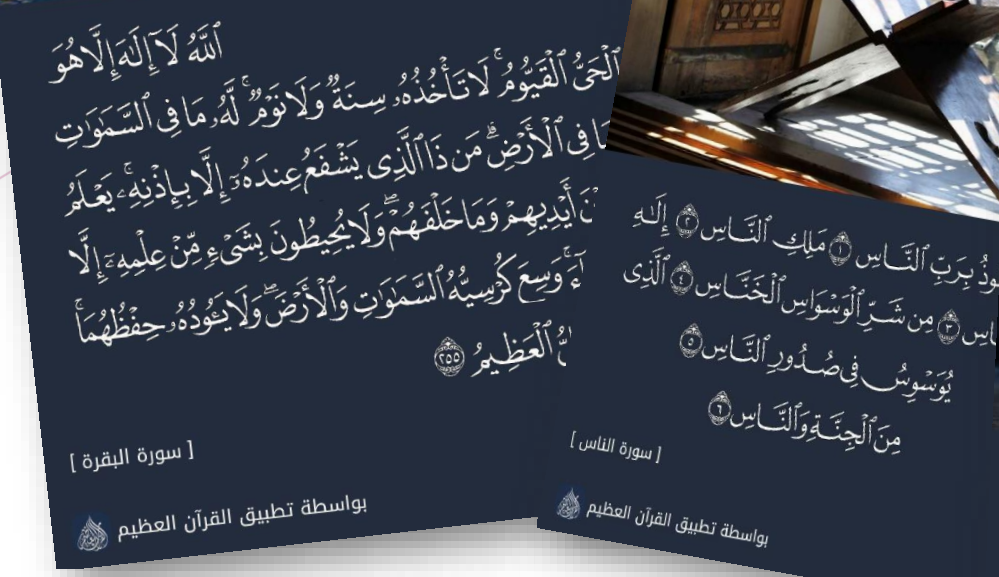 ٱللَّهُ لَآ إِلَـٰهَ إِلَّا هُوَ
ٱلْحَىُّ ٱلْقَيُّومُ ۚ لَا تَأْخُذُهُۥ سِنَةٌ وَلَا نَوْمٌ ۚ لَّهُۥ مَا فِى ٱلسَّمَـٰوَٰتِ
فِى ٱلْأَرْضِ ۗ مَن ذَا ٱلَّذِى يَشْفَعُ عِندَهُۥٓ إِلَّا بِإِذْنِهِۦ ۚ يَعْلَمُ
أَيْدِيهِمْ وَمَا خَلْفَهُمْ ۖ وَلَا يُحِيطُونَ بِشَىْءٍ مِّنْ عِلْمِهِۦٓ إِلَّا
وَسِعَ كُرْسِيُّهُ ٱلسَّمَـٰوَٰتِ وَٱلْأَرْضَ ۖ وَلَا يَـُٔودُهُۥ حِفْظُهُمَا ۚ
ٱلْعَظِيمُ ٢٥٥
[ سورة البقرة ]
بواسطة تطبيق القرآن العظيم
بِرَبِّ ٱلنَّاسِ ١ مَلِكِ ٱلنَّاسِ ٢ إِلَـٰهِ
٣ مِن شَرِّ ٱلْوَسْوَاسِ ٱلْخَنَّاسِ ٤ ٱلَّذِى
يُوَسْوِسُ فِى صُدُورِ ٱلنَّاسِ ٥
مِنَ ٱلْجِنَّةِ وَٱلنَّاسِ ٦
[ سورة الناس ]
بواسطة تطبيق القرآن العظيم